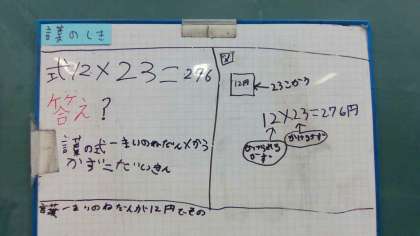 言葉のしき
式12×23=276
答え?
言葉の式 一まいのねだん×から
かず=だいきん
言葉一まいのねだんが12円でその
図
12円
←23こかう
12×23=276円
かけられるかず
かけるかず